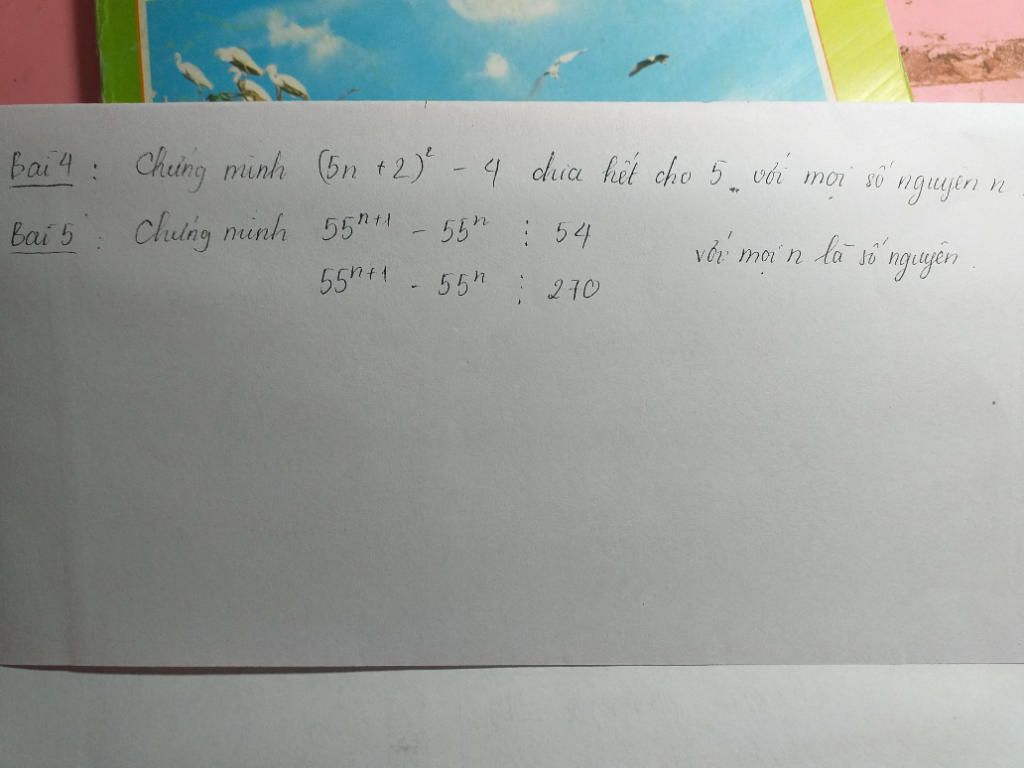 Bài 4 : Chứng minh (5n + 2)² - 4 chia hết cho 5 với mọi số nguyên n.
Bài 5 : Chứng minh 55ⁿ⁺¹ - 55ⁿ ⋮ 54
với mọi n là số nguyên.
55ⁿ⁺¹ - 55ⁿ ⋮ 270